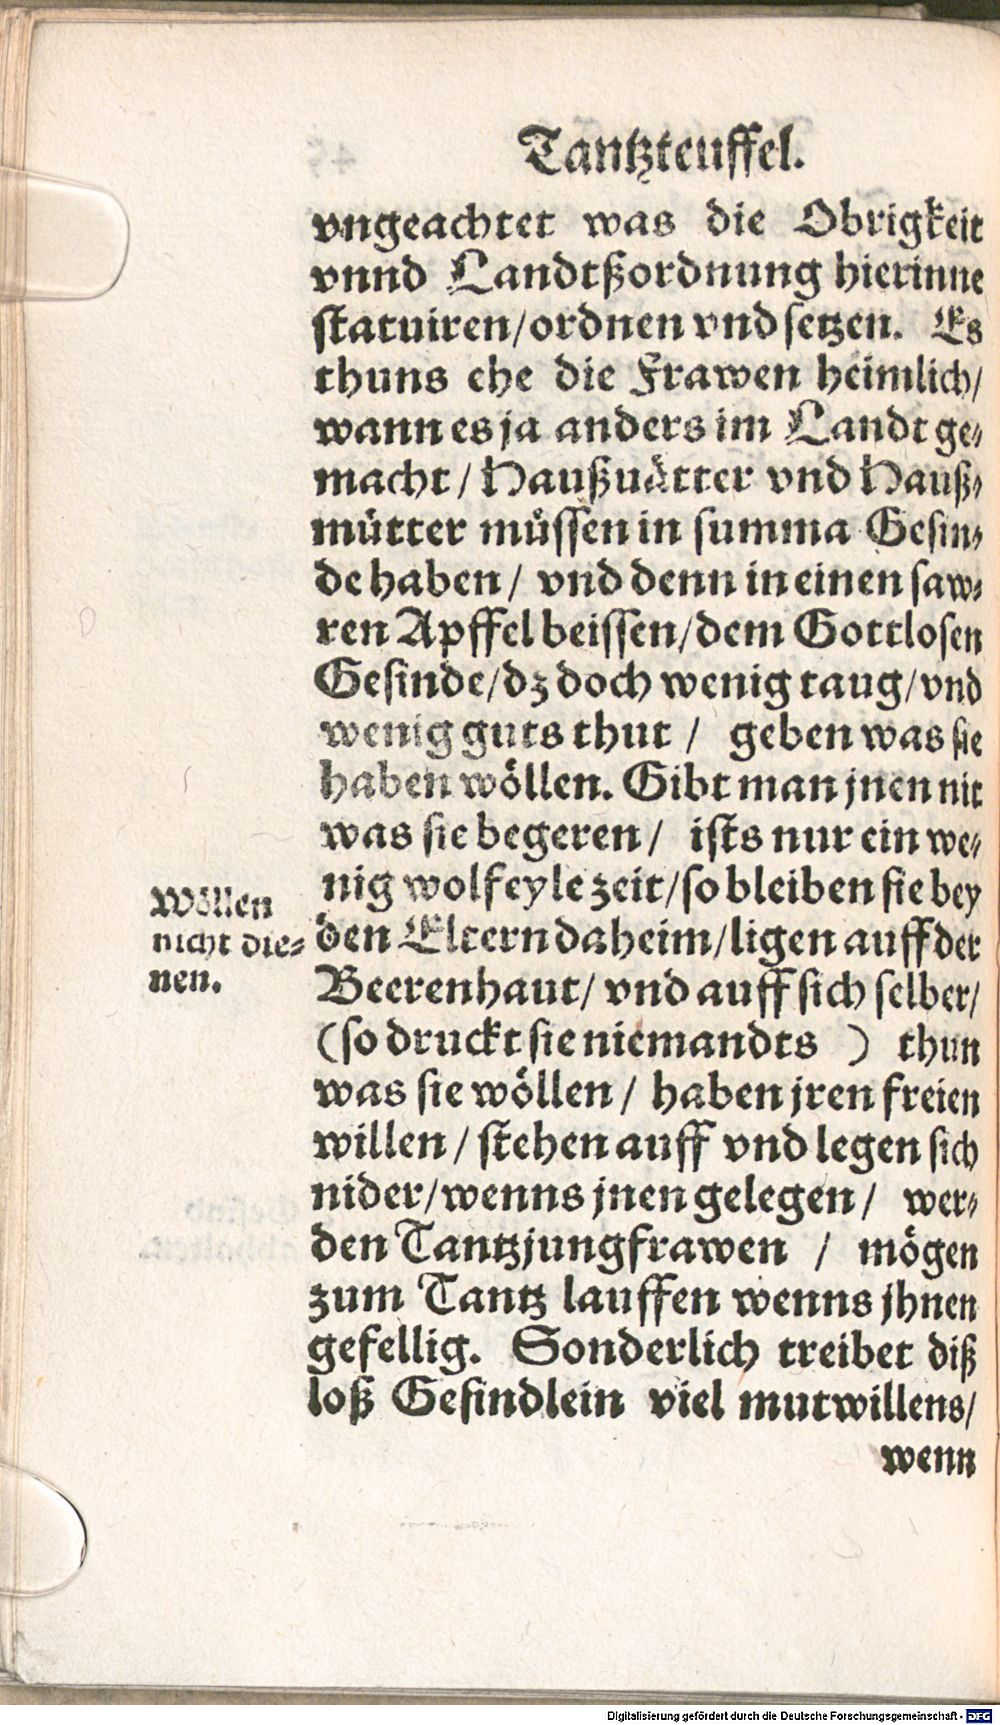 Tantzteuffel.
vngeachtet was die Obrigkeit
vnnd Landtßordnung hierinne
statuiren/ordnen vnd setzen. Es
thuns ehe die Frawen heimlich/
wann es ja anders im Landt ge-
macht / Haußuätter vnd Hauß-
mütter müssen in summa Gesin-
de haben / vnd denn in einen saw-
ren Apffel beissen/dem Gottlosen
Gesinde/dz doch wenig taug/vnd
wenig guts thut / geben was sie
haben wöllen. Gibt man jnen nit
was sie begeren / ists nur ein we-
nig wolfeyle zeit/so bleiben sie bey
Wöllen
nicht die-
nen.
den Eltern daheim/ligen auff der
Beerenhaut/ vnd auff sich selber/
(so druckt sie niemandts ) thun
was sie wöllen / haben jren freien
willen / stehen auff vnd legen sich
nider/wenns jnen gelegen / wer-
den Tantzjungfrawen / mögen
zum Tantz lauffen wenns jhnen
gefellig. Sonderlich treibet diß
loß Gesindlein viel mutwillens/
wenn
Digitalisierung gefördert durch die Deutsche Forschungsgemeinschaft - DFG